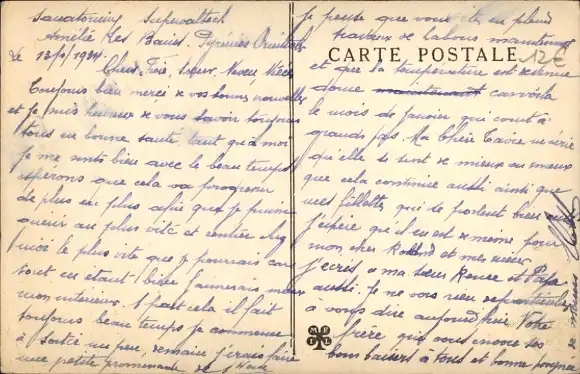 Sanatorium Supervaltech
Amélie les Bains. Pyrénées Orientales
le 12/1/1934
Chers Frère, Sœur, Neveu Nièce
Toujours bien merci de vos bonnes nouvelles
et je suis heureux de vous savoir toujours
tous en bonne santé, tant qu'à moi
je me sens bien avec le beau temps
espérons que cela va progresser
de plus en plus afin que je puisse
guérir au plus vite et rentrer chez
moi le plus vite que je pourrais car
tout en étant bien j'aimerais mieux
mon intérieur. A part cela il fait
toujours beau temps je commence
à sortir un peu, demain j'irais faire
une petite promenade de 1 heure
CARTE POSTALE
12€
Je pense que vous êtes en plein
travaux de labour maintenant
et que la température est devenue
douce maintenant car voilà
le mois de Janvier qui court à
grands pas. Ma Chère m'écrit
qu'elle se sent de mieux en mieux
que cela continue aussi ainsi que
mes fillettes qui se portent bien
j'espère qu'il en est de même pour
mon cher et mes nièces
j'écris à ma sœur Renée et Papa
aussi. Je ne vois rien de particulier
à vous dire aujourd'hui. Votre
frère qui vous envoie ses
bons baisers à tous et bonne poignée
de mains